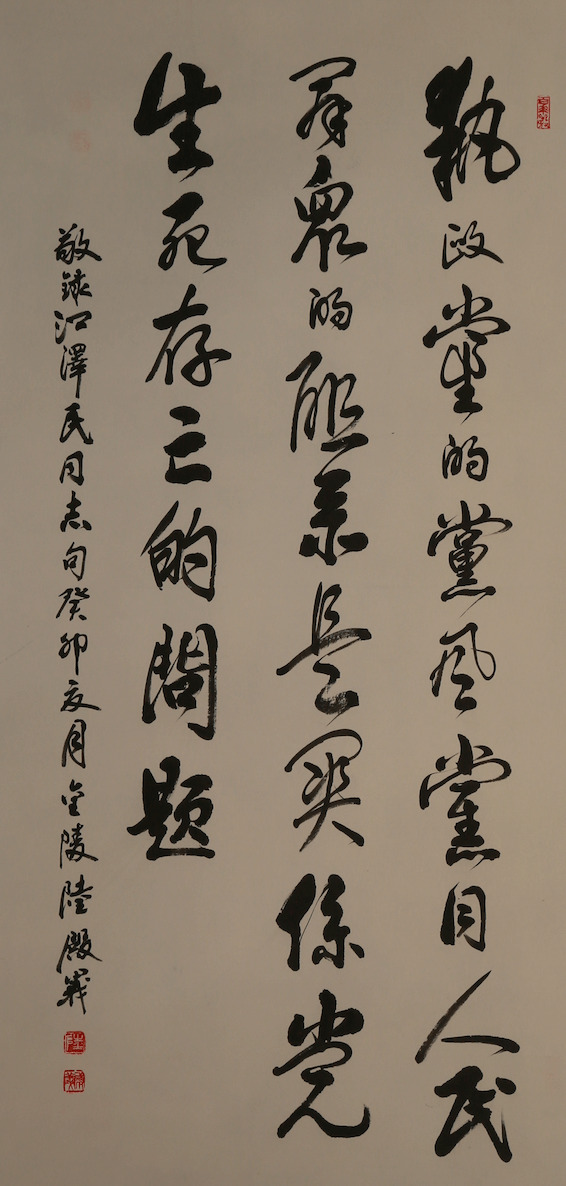 執政黨的黨風黨同人民
羣衆的联系是関係党
生死存亡的問題
敬錄江澤民同志句癸卯夏月金陵陸殿